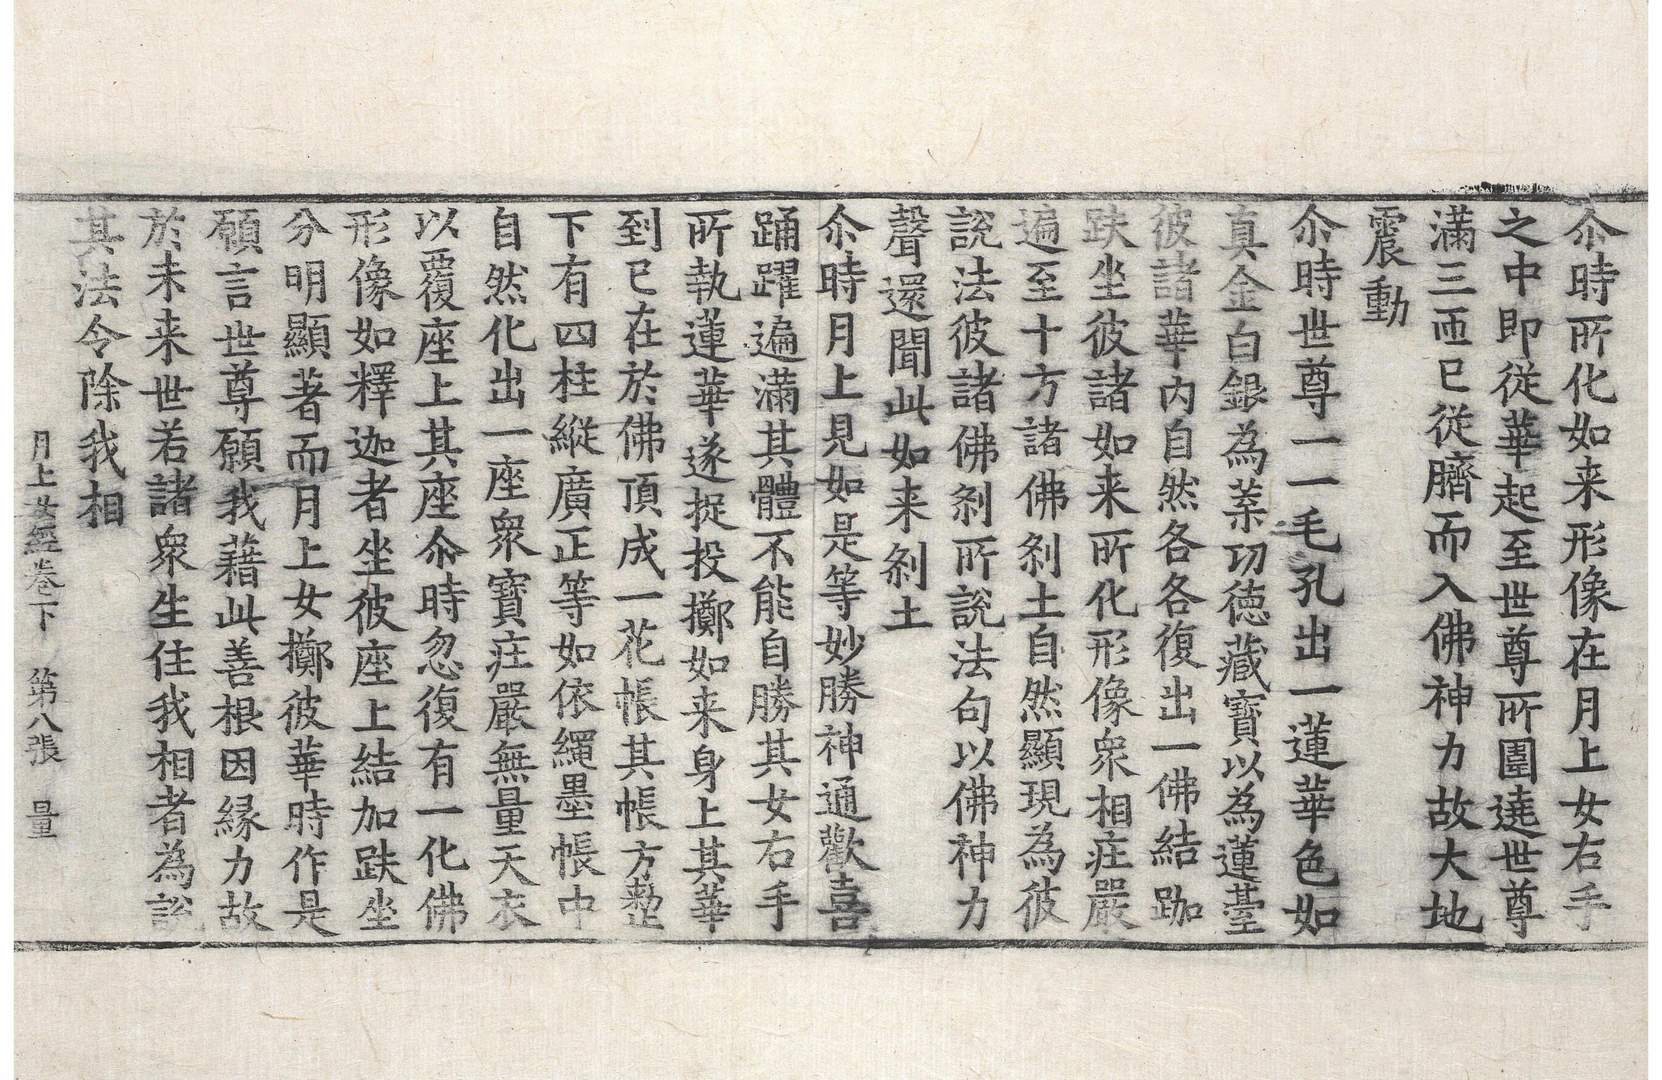 尒時所化如来形像在月上女右手
之中即從華起至世尊所圍遶世尊
滿三匝已從臍而入佛神力故大地
震動
尒時世尊一一毛孔出一蓮華色如
真金白銀為葉功徳藏寶以為蓮臺
彼諸華內自然各各復出一佛結跏
趺坐彼諸如来所化形像衆相庄嚴
遍至十方諸佛刹土自然顯現為彼
說法彼諸佛刹所說法句以佛神力
聲還聞此如来刹土
尒時月上見如是等妙勝神通歡喜
踊躍遍滿其體不能自勝其女右手
所執蓮華遂捉投擲如来身上其華
到已在於佛頂成一花帳其帳方整
下有四柱縱廣正等如依繩墨帳中
自然化出一座衆寶庄嚴無量天衣
以覆座上其座尒時忽復有一化佛
形像如釋迦者坐彼座上結加趺坐
分明顯著而月上女擲彼華時作是
願言世尊願我藉此善根因縁力故
於未来世若諸衆生住我相者為說
其法令除我相
月上女經卷下 第八張 量